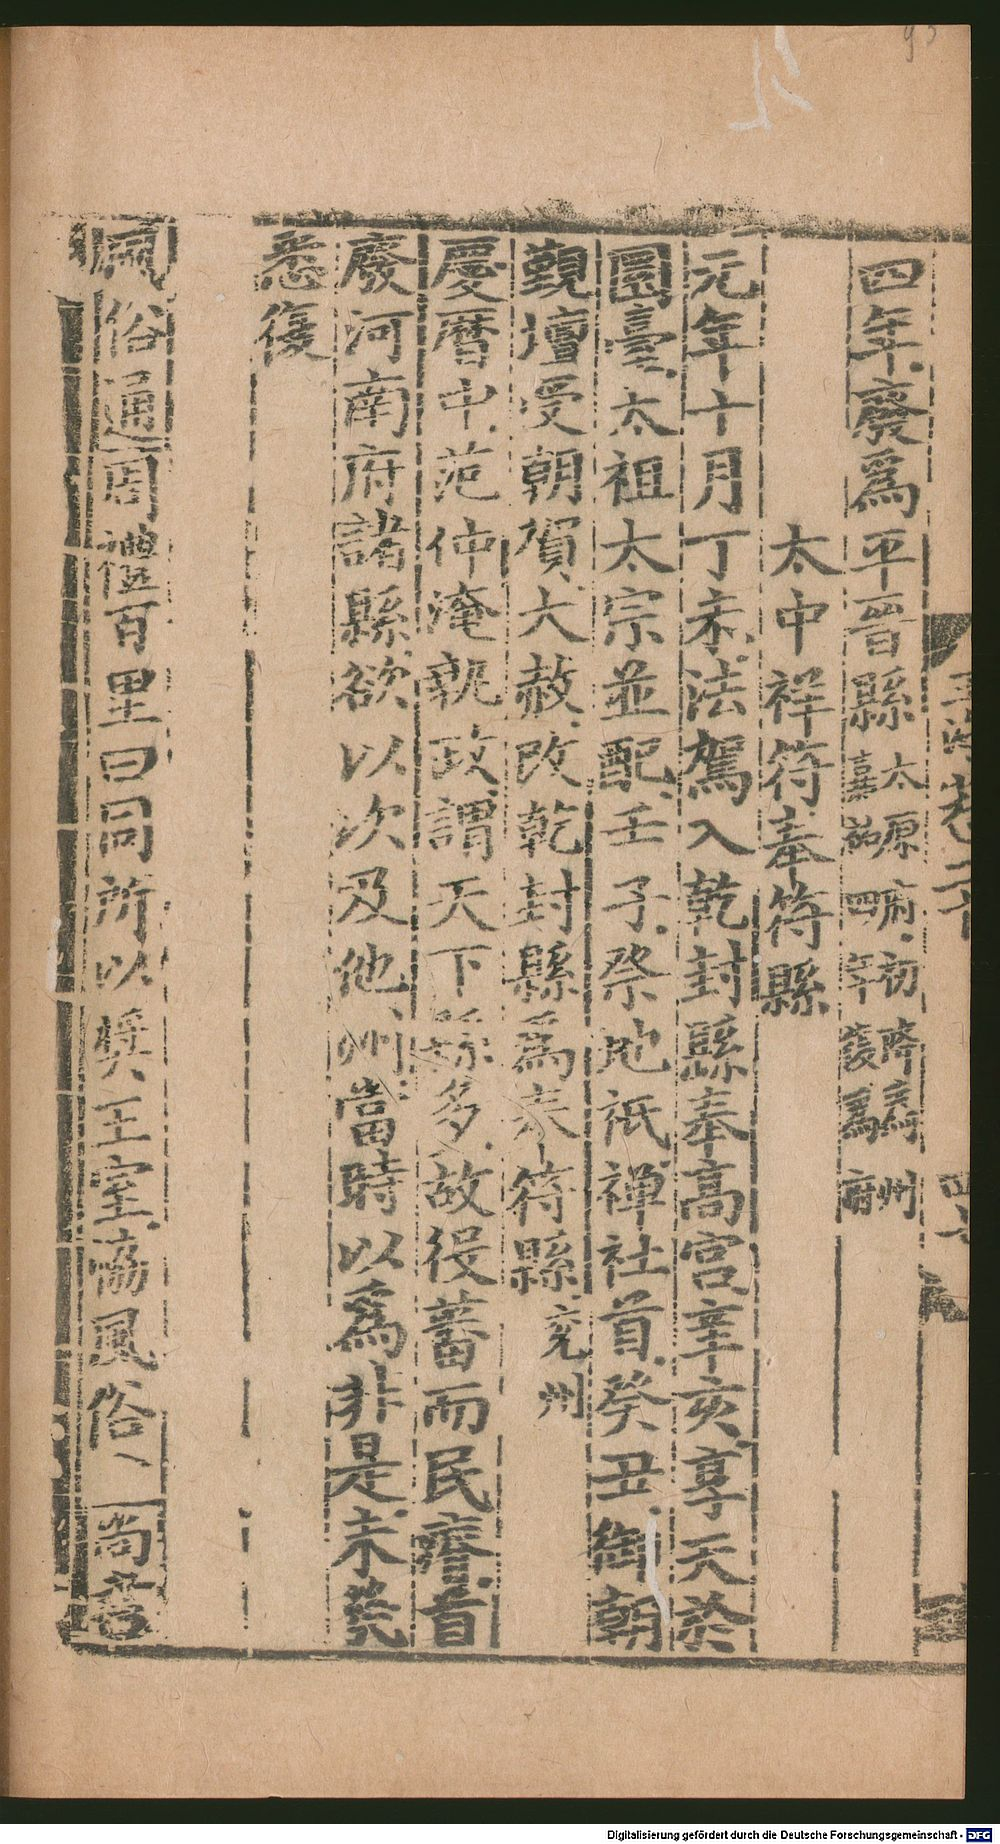 四年廢爲平晉縣太原府初廢爲州
嘉祐四年復爲府
太中祥符奉符縣
元年十月丁未法駕入乾封縣奉高宮辛亥享天於
圜臺太祖太宗並配壬子祭地祇禪社首癸丑御朝
覲壇受朝賀大赦改乾封縣爲奉符縣兗州
慶曆中范仲淹執政謂天下縣多故役蕃而民瘠首
廢河南府諸縣欲以次及他州當時以爲非是未幾
悉復
風俗通周禮百里曰同所以奬王室協風俗、尚書
Digitalisierung gefördert durch die Deutsche Forschungsgemeinschaft - DFG